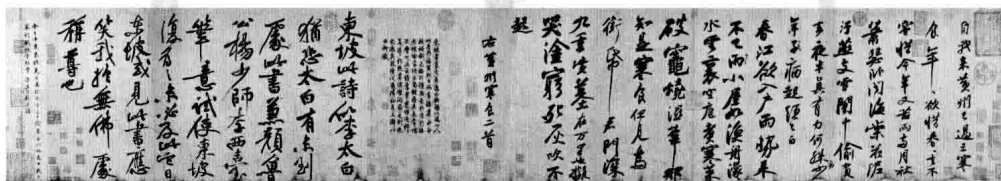 自我來黃州已過三寒
食年年欲惜春春去不
容惜今年又苦雨兩月秋
蕭瑟臥聞海棠花泥
汙燕支雪闇中偷負
去夜半真有力何殊少
年子病起頭已白
春江欲入戶雨勢來
不已小屋如漁舟濛濛
水雲裏空庖煮寒菜
破竈燒濕葦那
知是寒食但見烏
銜帋君門深
九重墳墓在万里也擬
哭塗窮死灰吹不
起
右黃州寒食二首
東坡此詩似李太白
猶恐太白有未到
處此書兼顏魯
公楊少師李西臺
筆意試使東坡
復為之未必及此它日
東坡或見此書應
笑我於無佛處
稱尊也